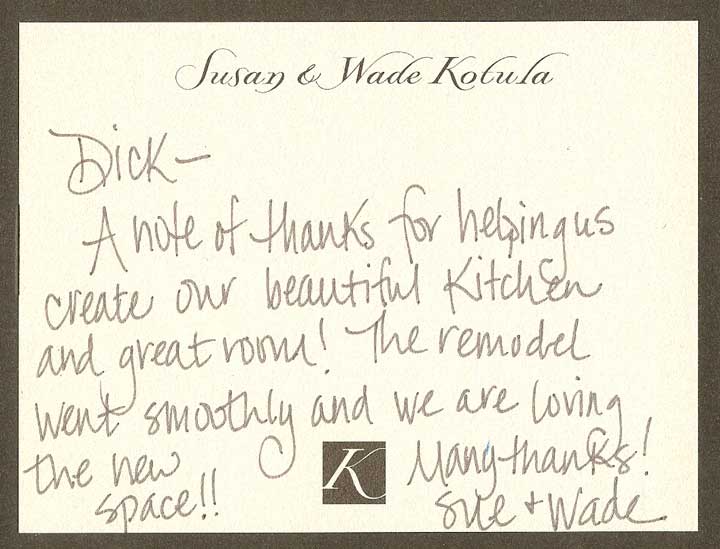 Susan & Wade Kotula
Dick—
A note of thanks for helping us
create our beautiful kitchen
and great room! The remodel
went smoothly and we are loving
the new
space!!
K
Many thanks!
Sue + Wade